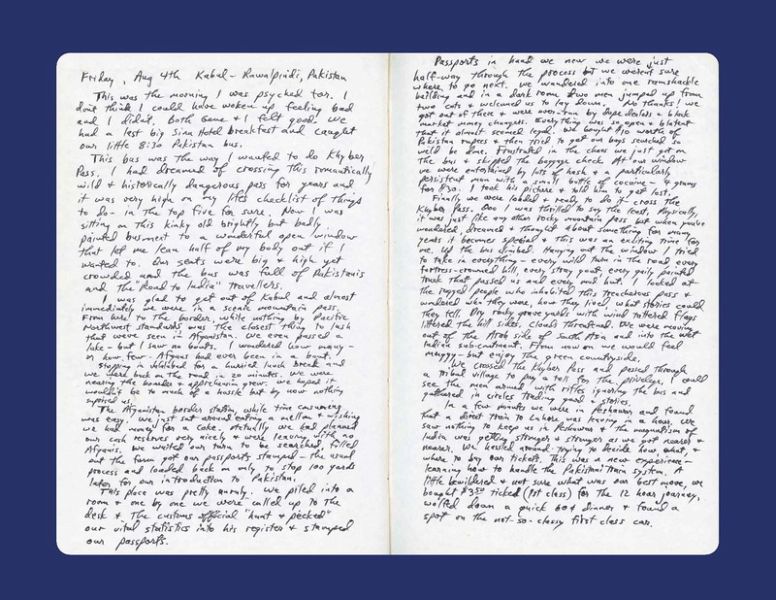 Friday, Aug 4th Kabul - Rawalpindi, Pakistan
This was the morning I was psyched for. I
don't think I could have woken up feeling bad
and I didn't. Both Gene & I felt good. We
had a last big Sina Hotel breakfast and caught
our little 8:30 Pakistan bus.
This bus was the way I wanted to do Khyber
Pass. I had dreamed of crossing this romantically
wild & historically dangerous pass for years and
it was very high on my lifes checklist of things
to do - in the top five for sure. Now I was
sitting on this kinky old brightly but badly
painted bus next to a wonderful open window
that let me lean half of my body out if I
wanted to. Our seats were big & high yet
crowded and the bus was full of Pakistanis
and the "Road to India" travellers.
I was glad to get out of Kabul and almost
immediately we were in a scenic mountain pass.
From here to the border, while nothing by Pacific
Northwest standards was the closest thing to lush
that we've seen in Afganistan. We even passed a
lake - but I saw no boats. I wondered how many -
or how few - Afgans had ever been in a boat.
Stopping in Jelalabad for a hurried lunch break and
we were back on the road in 20 minutes. We were
nearing the boarder & apprehension grew. We hoped it
wouldn't be to much of a hassle but by now nothing
suprised us.
The Afganistan border station, while time consuming
was easy. We just sat around eating a mellon & wishing
we had money for a Coke. Actually we had planned
our cash reserves very nicely & were leaving with no
Afganis. We waited our turn to be searched, filled
out the form got our passports stamped - the usual
process and loaded back in only to stop 100 yards
later for our introduction to Pakistan.
This place was pretty unruly. We piled into a
room & one by one we were called up to the
desk & the customs official "hunt & pecked"
our vital statistics into his register & stamped
our passports.
Passports in hand we new we were just
half-way through the process but we weren't sure
where to go next. We wandered into one ramshackle
building and in a dark room two men jumped up from
two cots & welcomed us to lay down. No thanks! We
got out of there & were over-run by dope dealers & black
market money changers. Everything was so open & blatent
that it almost seemed legal. We bought $10 worth of
Pakistan rupees & then tried to get our bags searched so
we'd be done. Frustrated in the chaos we just got on
the bus & skipped the baggage check. At our window
we were entertained by lots of hash & a particularly
persistent man with a small bottle of cocaine - 4 grams
for $30. I took his picture & told him to get lost.
Finally we were loaded & ready to do it - cross the
Khyber Pass. Boy I was thrilled to say the least. Physically,
it was just like any other rocky mountain pass but when you've
wondered, dreamed & thought about something for many
years it becomes special & this was an exciting time for
me. Up the bus climbed. Hanging out the window I tried
to take in everything - every wild turn in the road every
fortress-crowned hill, every stray goat, every gaily painted
truck that passed us and every mud hut. I looked at
the rugged people who inhabited this treacherous pass &
wondered who they were, how they lived, what stories could
they tell. Dry rocky graveyards with wind tattered flags
littered the hill sides. Clouds threatened. We were moving
out of the Arab side of South Asia and into the wet
Indian sub-continent. From now on we would feel
muggy - but enjoy the green countryside.
We crossed the Kyber Pass and passed through
a tribal village to pay a toll for the priveledge. I could
see the men armed with rifles ignoring the bus and
gathered in circles trading yard & stories.
In a few minutes we were in Peshawar and found
that a direct train to Lahore was leaving in a hour. We
saw nothing to keep us in Peshawar & the magnatism of
India was getting stronger & stronger as we got nearer &
nearer. We hassled around trying to decide how, what, &
where to buy our tickets. This was a new experience -
learning how to handle the Pakistani train system. A
little bewildered & not sure what was our best move, we
bought $3.50 ticked (1st class) for the 12 hour journey,
wolfed down a quick 60¢ dinner & found a
spot on the not-so-classy first class car.